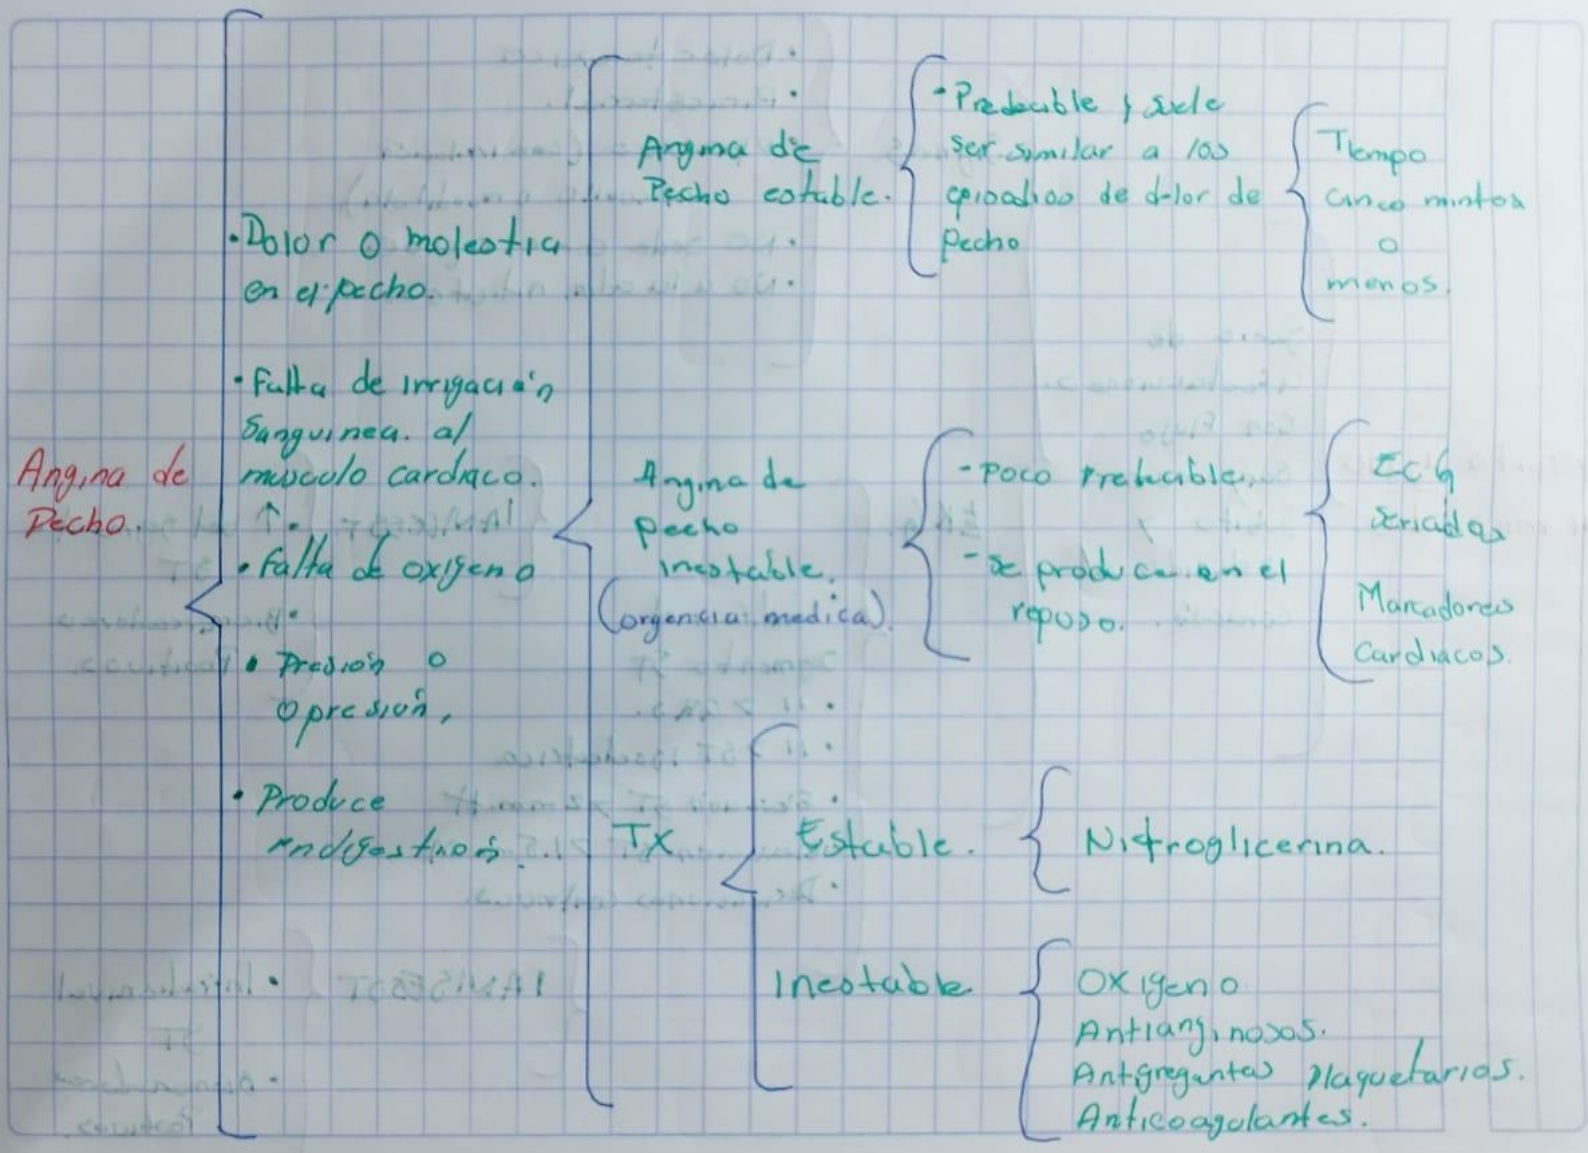 Angina de
Pecho.
• Dolor o molestia
en el pecho.
• Falta de irrigación
Sanguinea. al
musculo cardiaco.
↑.
• Falta de oxigeno
• Presión o
Opresión,
• Produce
indigestion
Angina de
Pecho estable.
- Predecible, suele
ser similar a los
episodios de dolor de
Pecho
Tiempo
cinco mintos
o
menos.
Angina de
pecho
inestable.
(orgencia medica).
- Poco Predecible
- Se produce en el
reposo.
ECG
Seriados
Marcadores
Cardiacos.
Tx
Estable.
Nitroglicerina.
Inestable
Oxigeno
Antianginosos.
Antigregantes Plaquetarios.
Anticoagulantes.